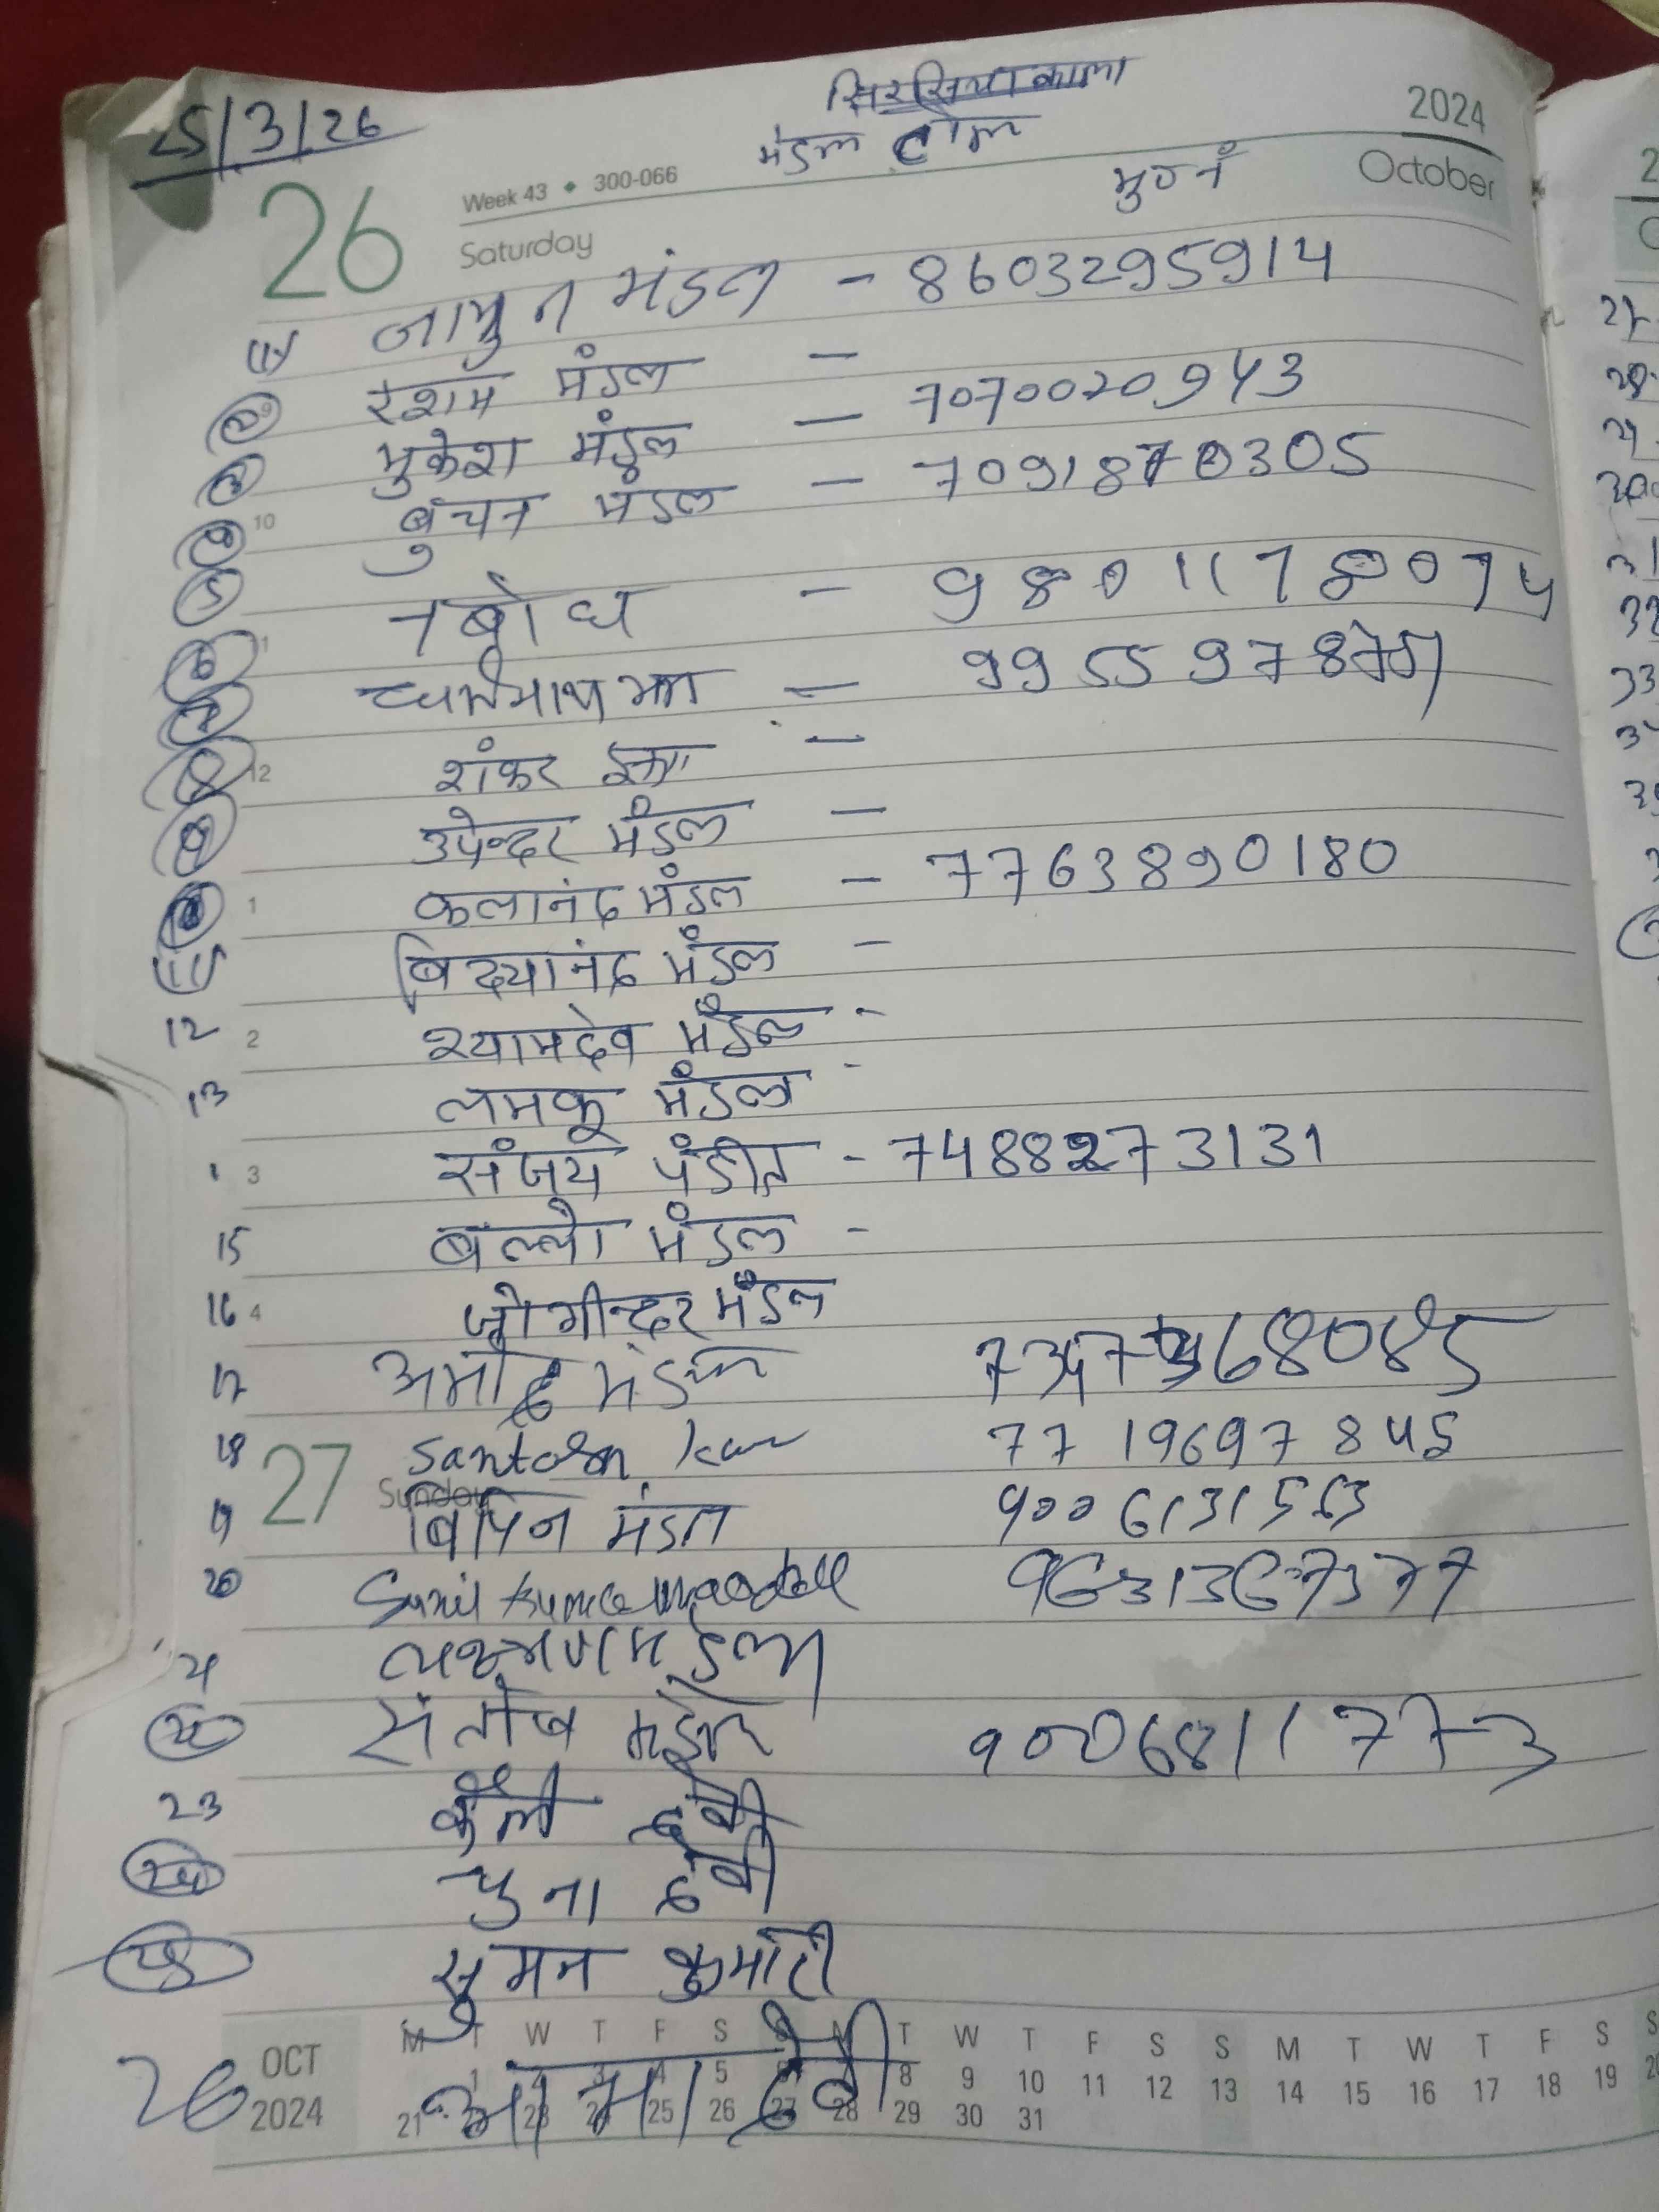 सिरसिया काला
25/3/26
मंडल टोल
2024
October
मुठनं
26
Week 43 • 300-066
Saturday
(1) जामुन मंडल - 8603295914
(2) रेशम मंडल -
(3) मुकेश मंडल - 7070020943
9
(4) बुचन मंडल - 7091870305
10
(5) नबोध - 9801178074
(6) धर्मनाथ झा - 99559787
(7) शंकर झा -
(8) उपेन्दर मंडल -
12
(9) कलानंद मंडल - 7763890180
1
(11) बिद्यानंद मंडल -
12 2 श्यामदेव मंडल -
13 लमकू मंडल -
3 संजय पंडीत - 7488273131
15 बल्लो मंडल -
16 4 जोगीन्दर मंडल
17 अमोद मंडल 68085
18 Santosh 7719697845
27
Sunday
19 बिपिन मंडल 9006131563
20 Sunil Kumar Mandal 9631367377
21 लक्ष्मण मंडल
22 संतोष मंडल 9006811773
23 देवी
24 चुना देवी
25 सुमन कुमारी
26 आभा देवी
OCT M T W T F S S M T W T F S S M T W T F S S
2024 1 2 3 4 5 6 8 9 10 11 12 13 14 15 16 17 18 19 20
21 23 24 25 26 27 28 29 30 31